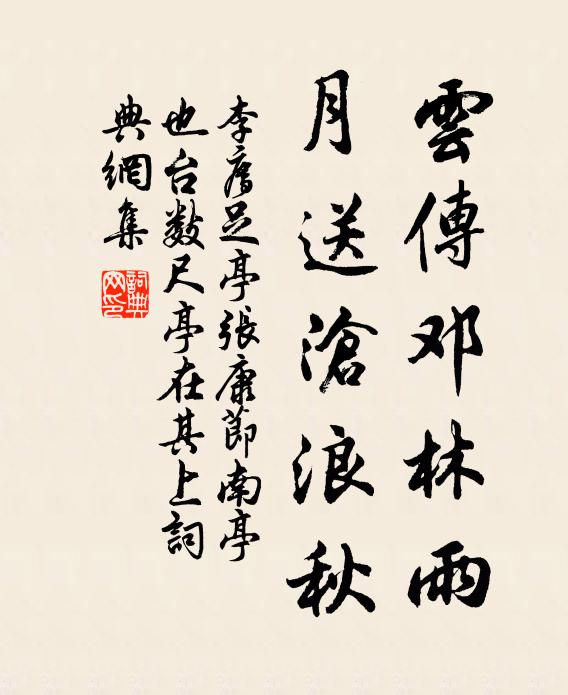 雲傳邓林雨
月送滄浪秋
李膺足亭張康節南亭
也台数尺亭在其上詞
典網集
詞典网印